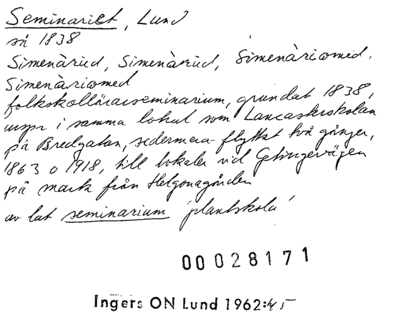 Seminariet, Lund
så 1838
Simenàriud, Simenàriud, Simenàriomed,
Simenàriomed
folkskollärarseminarium, grundat 1838,
urspr i samma lokal som Lancasterskolan
på Bredgatan, sedermera flyttat två gånger,
1863 o 1918, till lokaler vid Getingevägen
på mark från Helgonagården
av lat seminarium 'plantskola'
00028171
Ingers ON Lund 1962:45